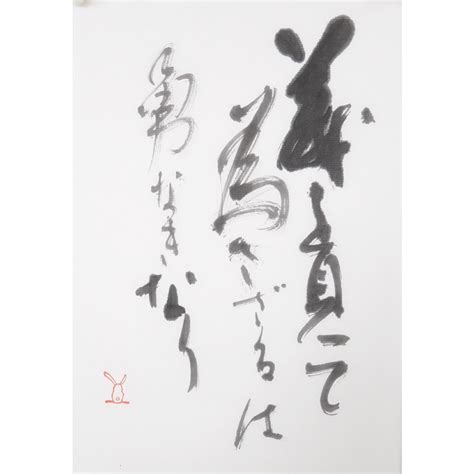 義を見て
為さざるは
勇なきなり